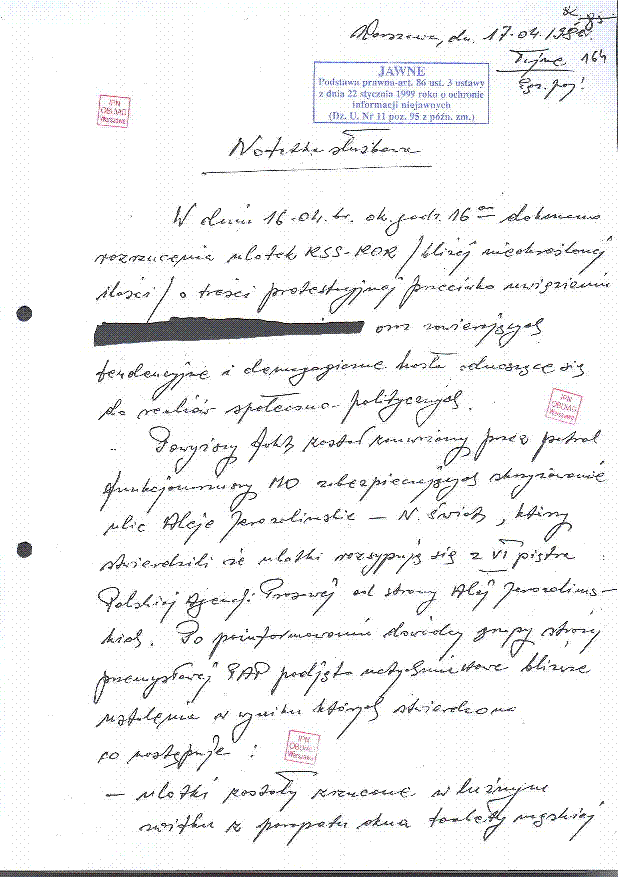 Warszawa, dn. 17.04.1980.
Tajne 164
Egz. poj!
JAWNE
Podstawa prawna-art. 86 ust. 3 ustawy
z dnia 22 stycznia 1999 roku o ochronie
informacji niejawnych
(Dz. U. Nr 11 poz. 95 z późn. zm.)
IPN
OBUiAD
Warszawa
Notatka służbowa
W dniu 16.04. br. ok. godz. 16 oo dokonano
rozrzucenia ulotek KSS-KOR /bliżej nieokreślonej
ilości/ o treści protestacyjnej przeciwko uwięzieniu
oraz zawierających
tendencyjne i demagogiczne hasła odnoszące się
do realiów społeczno-politycznych.
IPN
OBUiAD
Warszawa
Powyższy fakt został zauważony przez patrol
funkcjonariuszy MO zabezpieczających skrzyżowanie
ulic Aleje Jerozolimskie – N. Świat, którzy
stwierdzili że ulotki rozsypują się z VI piętra
Polskiej Agencji Prasowej od strony Alej Jerozolims-
kich. Po poinformowaniu dowódcy grupy straży
przemysłowej PAP podjęto natychmiastowe bliższe
ustalenia w wyniku których stwierdzono
co następuje:
IPN
OBUiAD
Warszawa
– ulotki zostały zrzucone w luźnym
zwitku z parapetu okna toalety męskiej